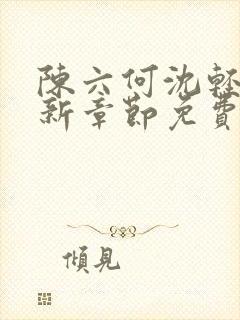 陳六何沈輕
新章節免費
傾見